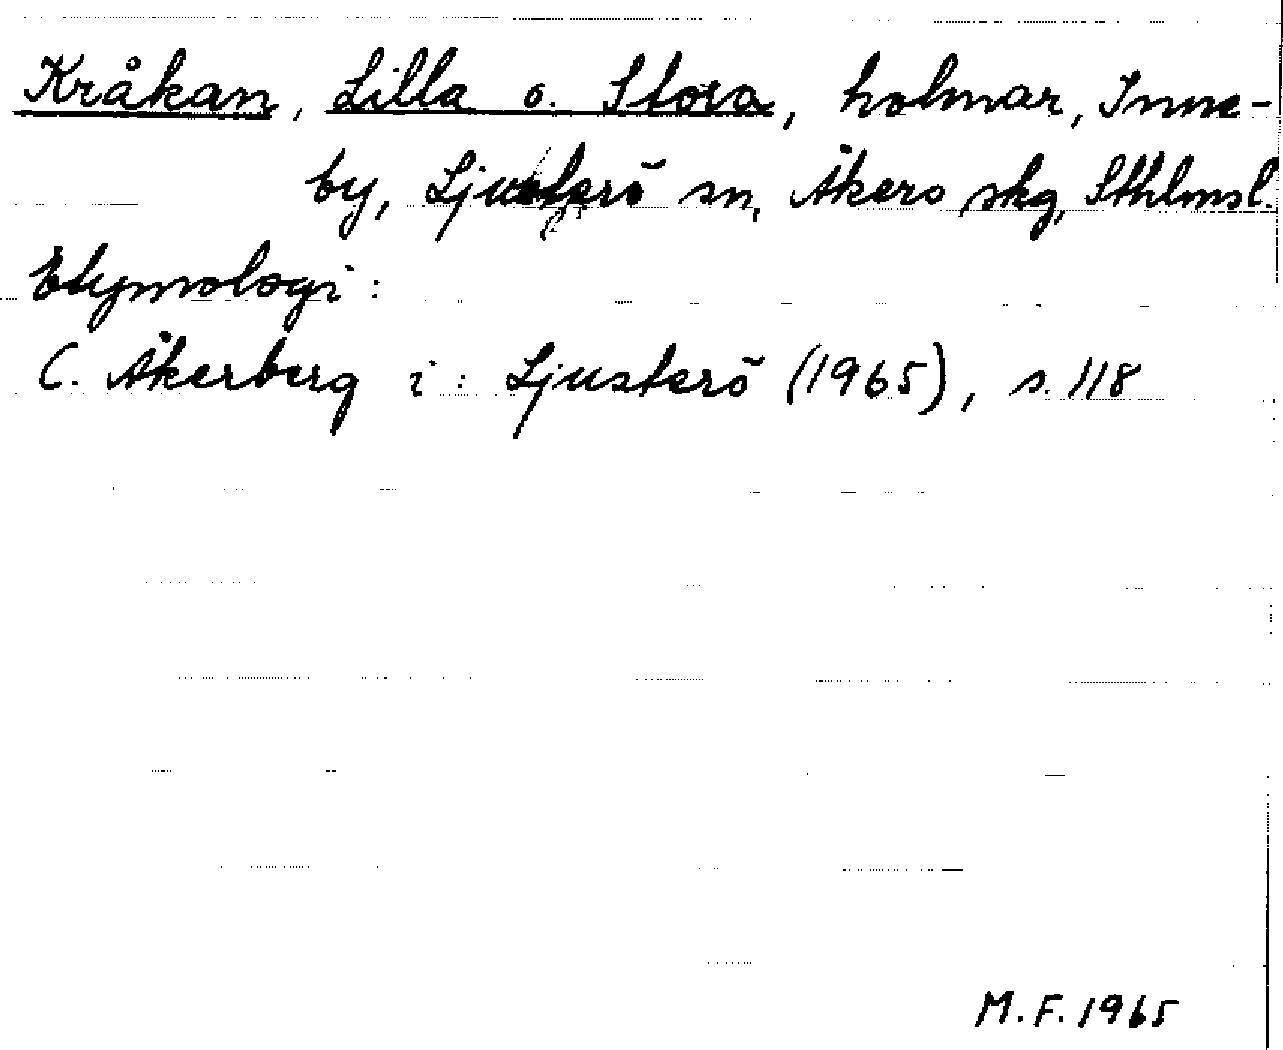 Kråkan, Lilla o. Stora, holmar, Inne-
by, Ljusterö sn, Åkers skg, Sthlmsl.
Etymologi:
C. Åkerberg i: Ljusterö (1965), s. 118
M. F. 1965